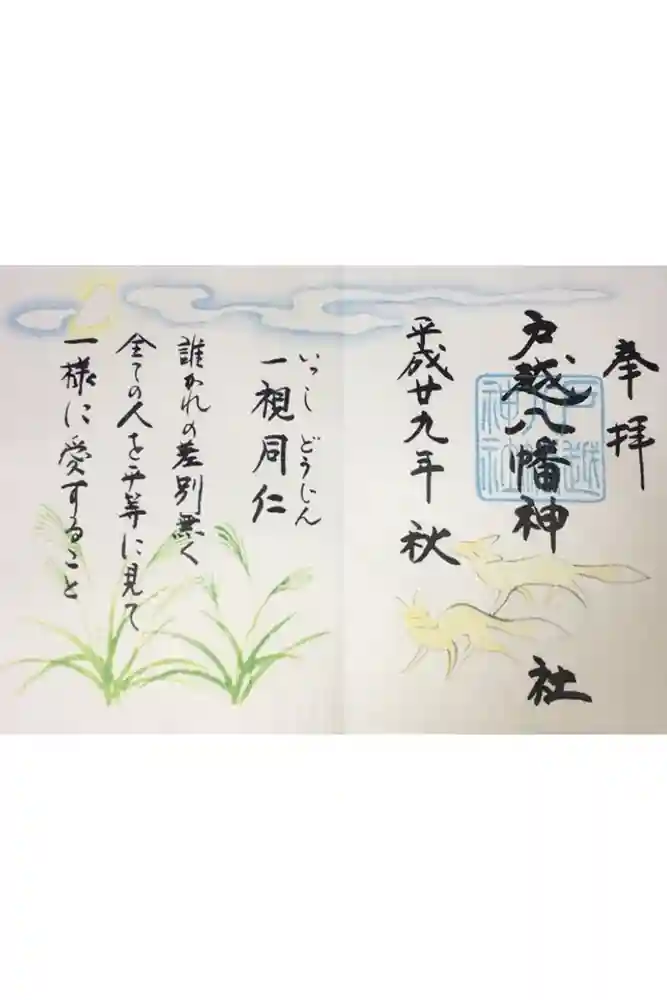 奉拝
戸越八幡神社
戸越八幡神社
平成廿九年 秋
いっし どうじん
一視同仁
誰かれの差別無く
全ての人を平等に見て
一様に愛すること